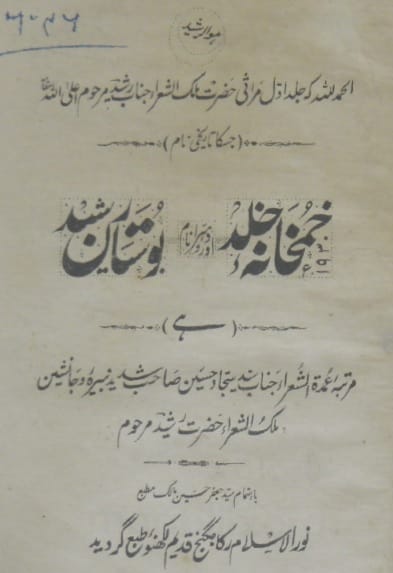 ہوالرشید
الحمد للہ کہ جلد اول مراثی حضرت ملک الشعرا جناب رشید مرحوم اعلی اللہ مقامہ
(جسکا تاریخی نام)
خمخانہ خلد ۱۹۳۰ء اور دوسرا نام بوستان رشید
(ہے)
مرتبہ عمدۃ الشعرا جناب سید سجاد حسین صاحب شدید نبیرہ و جانشین
ملک الشعرا حضرت رشید مرحوم
باہتمام سید جعفر حسین مالک مطبع
نور الاسلام رکابگنج قدیم لکھنؤ طبع گردید